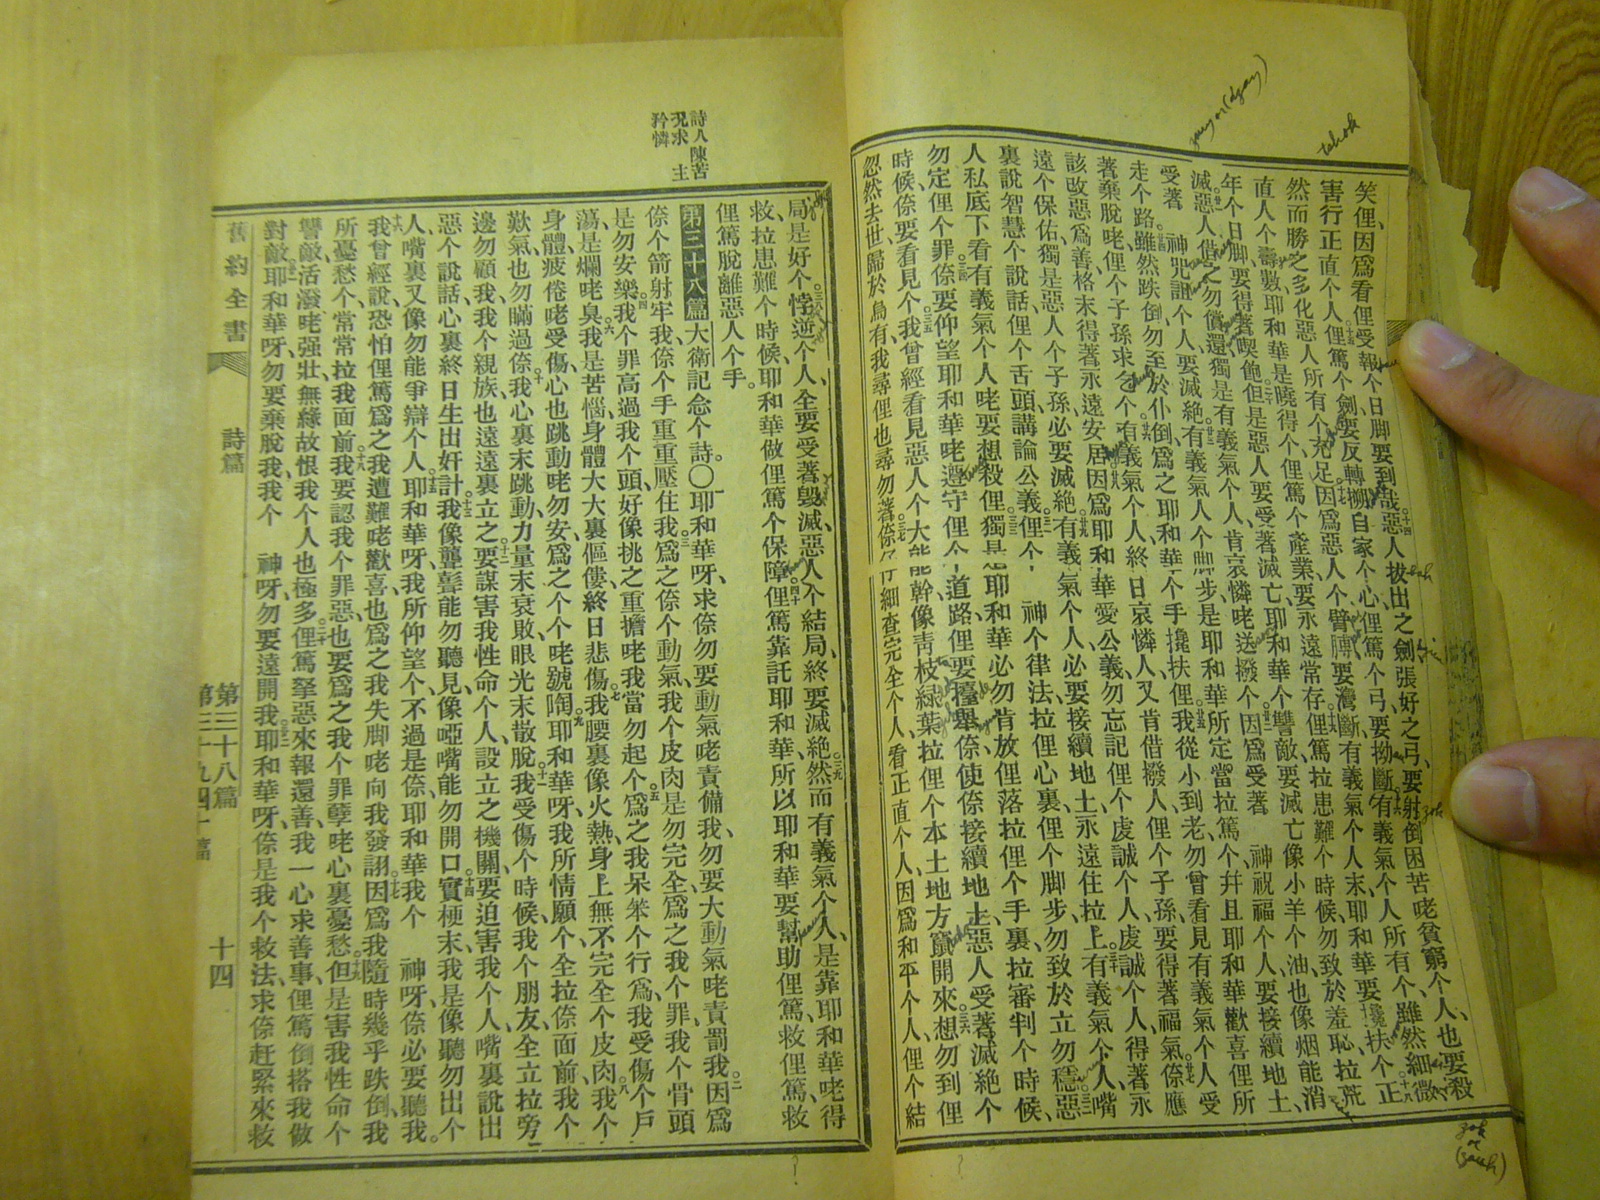 笑俚因爲看俚受報个日脚要到哉惡人拔出之劍張好之弓要射倒困苦咾貧窮个人也要殺
害行正直个人俚篤个劍要反轉擉自家个心俚篤个弓要拗斷有義氣个人所有个雖然細微
然而勝之多化惡人所有个充足因爲惡人个臂膊要灣斷有義氣个人末耶和華要攙扶个正
直人个壽數耶和華是曉得个俚篤个產業要永遠常存俚篤拉患難个時候勿致於羞恥拉荒
年个日脚要得著喫飽但是惡人要受著滅亡耶和華个讐敵要滅亡像小羊个油也像烟能消
滅惡人借之勿償還獨是有義氣个人肯哀憐咾送撥个因爲受著 神祝福个人要接續地土
受著 神咒詛个人要滅絕有義氣人个脚步是耶和華所定當拉篤个幷且耶和華歡喜俚所
走个路雖然跌倒勿至於仆倒爲之耶和華个手攙扶俚我從小到老勿曾看見有義氣个人受
著棄脫咾俚个子孫求乞个有義氣个人終日哀憐人又肯借撥人俚个子孫要得著福氣倷應
該改惡爲善格末得著永遠安居因爲耶和華愛公義勿忘記俚个虔誠个人虔誠个人得著永
遠个保佑獨是惡人个子孫必要滅絕有義氣个人必要接續地土永遠住拉上有義氣个人嘴
裏說智慧个說話俚个舌頭講論公義俚个 神个律法拉俚心裏俚个脚步勿致於立勿穩惡
人私底下看有義氣个人咾要想殺俚獨是耶和華必勿肯放俚落拉俚个手裏拉審判个時候
勿定俚个罪倷要仰望耶和華咾遵守俚个道路俚要擡舉倷使倷接續地土惡人受著滅絕个
時候倷要看見个我曾經看見惡人个大能幹像靑枝綠葉拉俚个本土地方蕻開來想勿到俚
忽然去世歸於烏有我尋俚也尋勿著倷仔細查完全个人看正直个人因爲和平个人俚个結
詩人陳苦
況求主
矜憐
局是好个悖逆个人全要受著毀滅惡人个結局終要滅絕然而有義氣个人是靠耶和華咾得
救拉患難个時候耶和華做俚篤个保障俚篤靠託耶和華所以耶和華要幫助俚篤救俚篤救
俚篤脫離惡人个手
第三十八篇 大衛記念个詩〇耶和華呀求倷勿要動氣咾責備我勿要大動氣咾責罰我因爲
倷个箭射牢我倷个手重重壓住我爲之倷个動氣我个皮肉是勿完全爲之我个罪我个骨頭
是勿安樂我个罪高過我个頭好像挑之重擔咾我當勿起个爲之我呆笨个行爲我受傷个戶
蕩是爛咾臭我是苦惱身體大大裏傴僂終日悲傷我腰裏像火熱身上無不完全个皮肉我个
身體疲倦咾受傷心也跳動咾勿安爲之个个咾號啕耶和華呀我所情願个全拉倷面前我个
歎氣也勿瞞過倷我心裏末跳動力量末衰敗眼光末散脫我受傷个時候我个朋友全立拉旁
邊勿顧我我个親族也遠遠裏立之要謀害我性命个人設立之機關要迫害我个人嘴裏說出
惡个說話心裏終日生出奸計我像聾髶能勿聽見像啞嘴能勿開口實梗末我是像聽勿出个
人嘴裏又像勿能爭辯个人耶和華呀我所仰望个不過是倷耶和華我个 神呀倷必要聽我
我曾經說恐怕俚篤爲之我遭難咾歡喜也爲之我失脚咾向我發詡因爲我隨時幾乎跌倒我
所憂愁个常常拉我面前我要認我个罪惡也要爲之我个罪孽咾心裏憂愁但是害我性命个
讐敵活潑咾强壯無緣故恨我个人也極多俚篤拏惡來報還善我一心求善事俚篤倒搭我做
對敵耶和華呀勿要棄脫我我个 神呀勿要遠開我耶和華呀倷是我个救法求倷赶緊來救
舊約全書 詩篇 第三十八篇 第三十九四十篇 十四